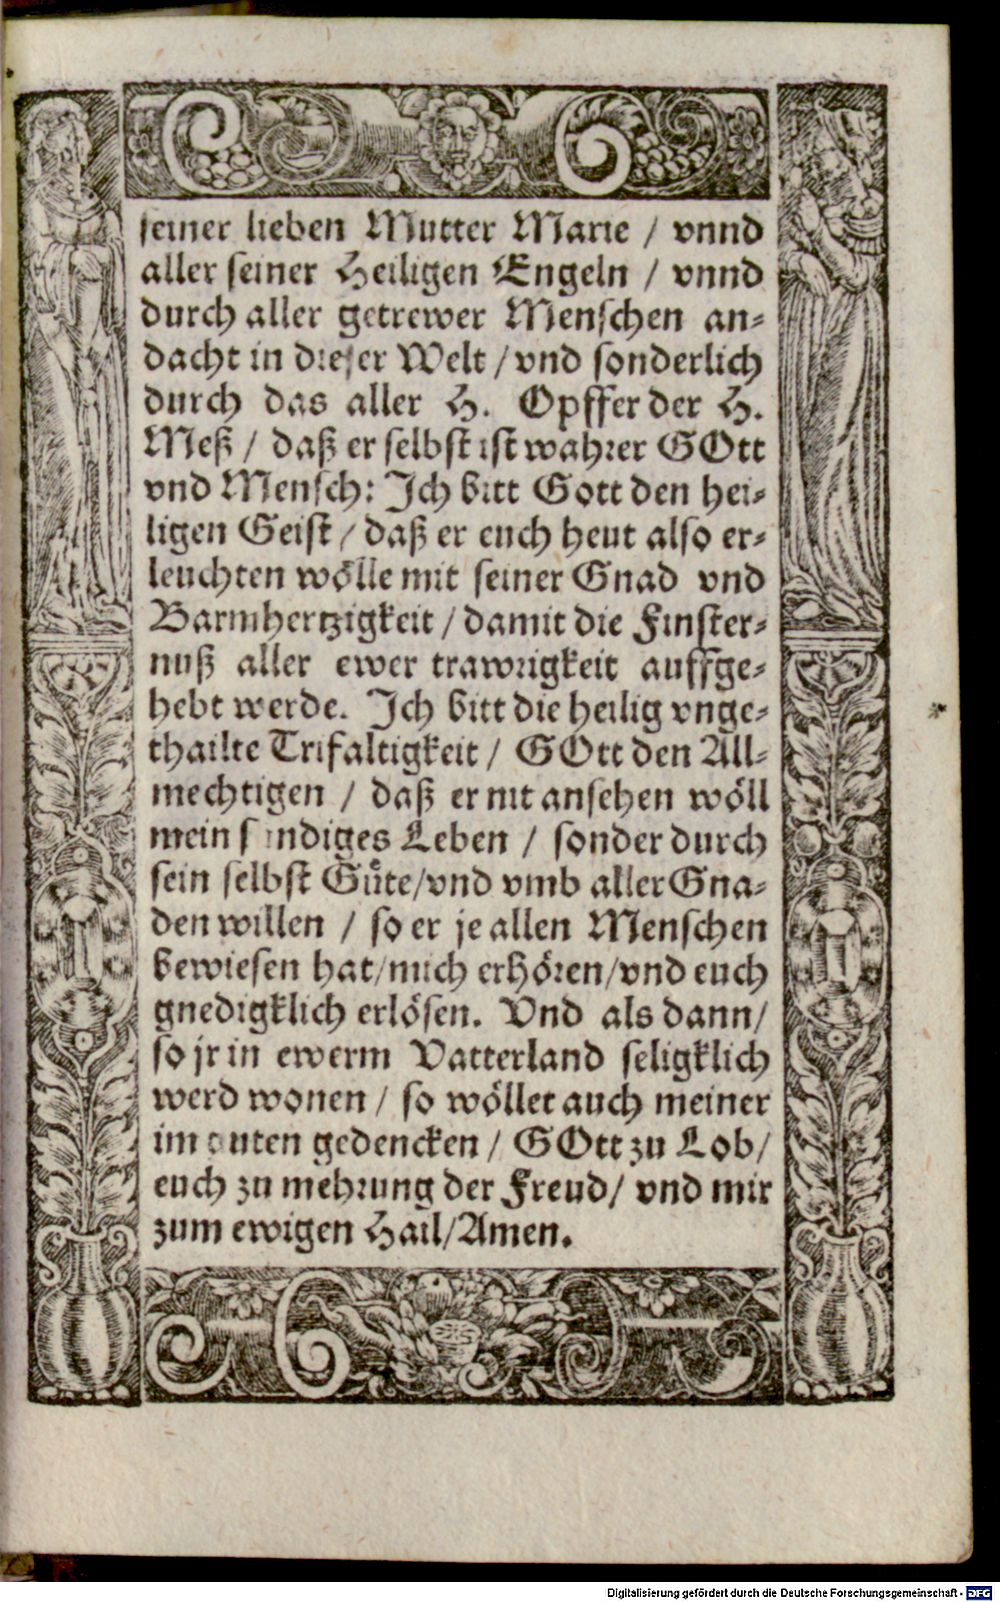 seiner lieben Mutter Marie / vnnd
aller seiner Heiligen Engeln / vnnd
durch aller getrewer Menschen an-
dacht in dieser Welt / vnd sonderlich
durch das aller H. Opffer der H.
Meß / daß er selbst ist wahrer GOtt
vnd Mensch: Ich bitt Gott den hei-
ligen Geist / daß er euch heut also er-
leuchten wölle mit seiner Gnad vnd
Barmhertzigkeit / damit die Finster-
nuß aller ewer trawrigkeit auffge-
hebt werde. Ich bitt die heilig vnge-
thailte Trifaltigkeit / GOtt den All-
mechtigen / daß er nit ansehen wöll
mein s ndiges Leben / sonder durch
sein selbst Güte/vnd vmb aller Gna-
den willen / so er je allen Menschen
bewiesen hat/mich erhören/vnd euch
gnedigklich erlösen. Vnd als dann/
so jr in ewerm Vatterland seligklich
werd wonen / so wöllet auch meiner
im guten gedencken / GOtt zu Lob/
euch zu mehrung der Freud/ vnd mir
zum ewigen Hail/Amen.
Digitalisierung gefördert durch die Deutsche Forschungsgemeinschaft - DFG